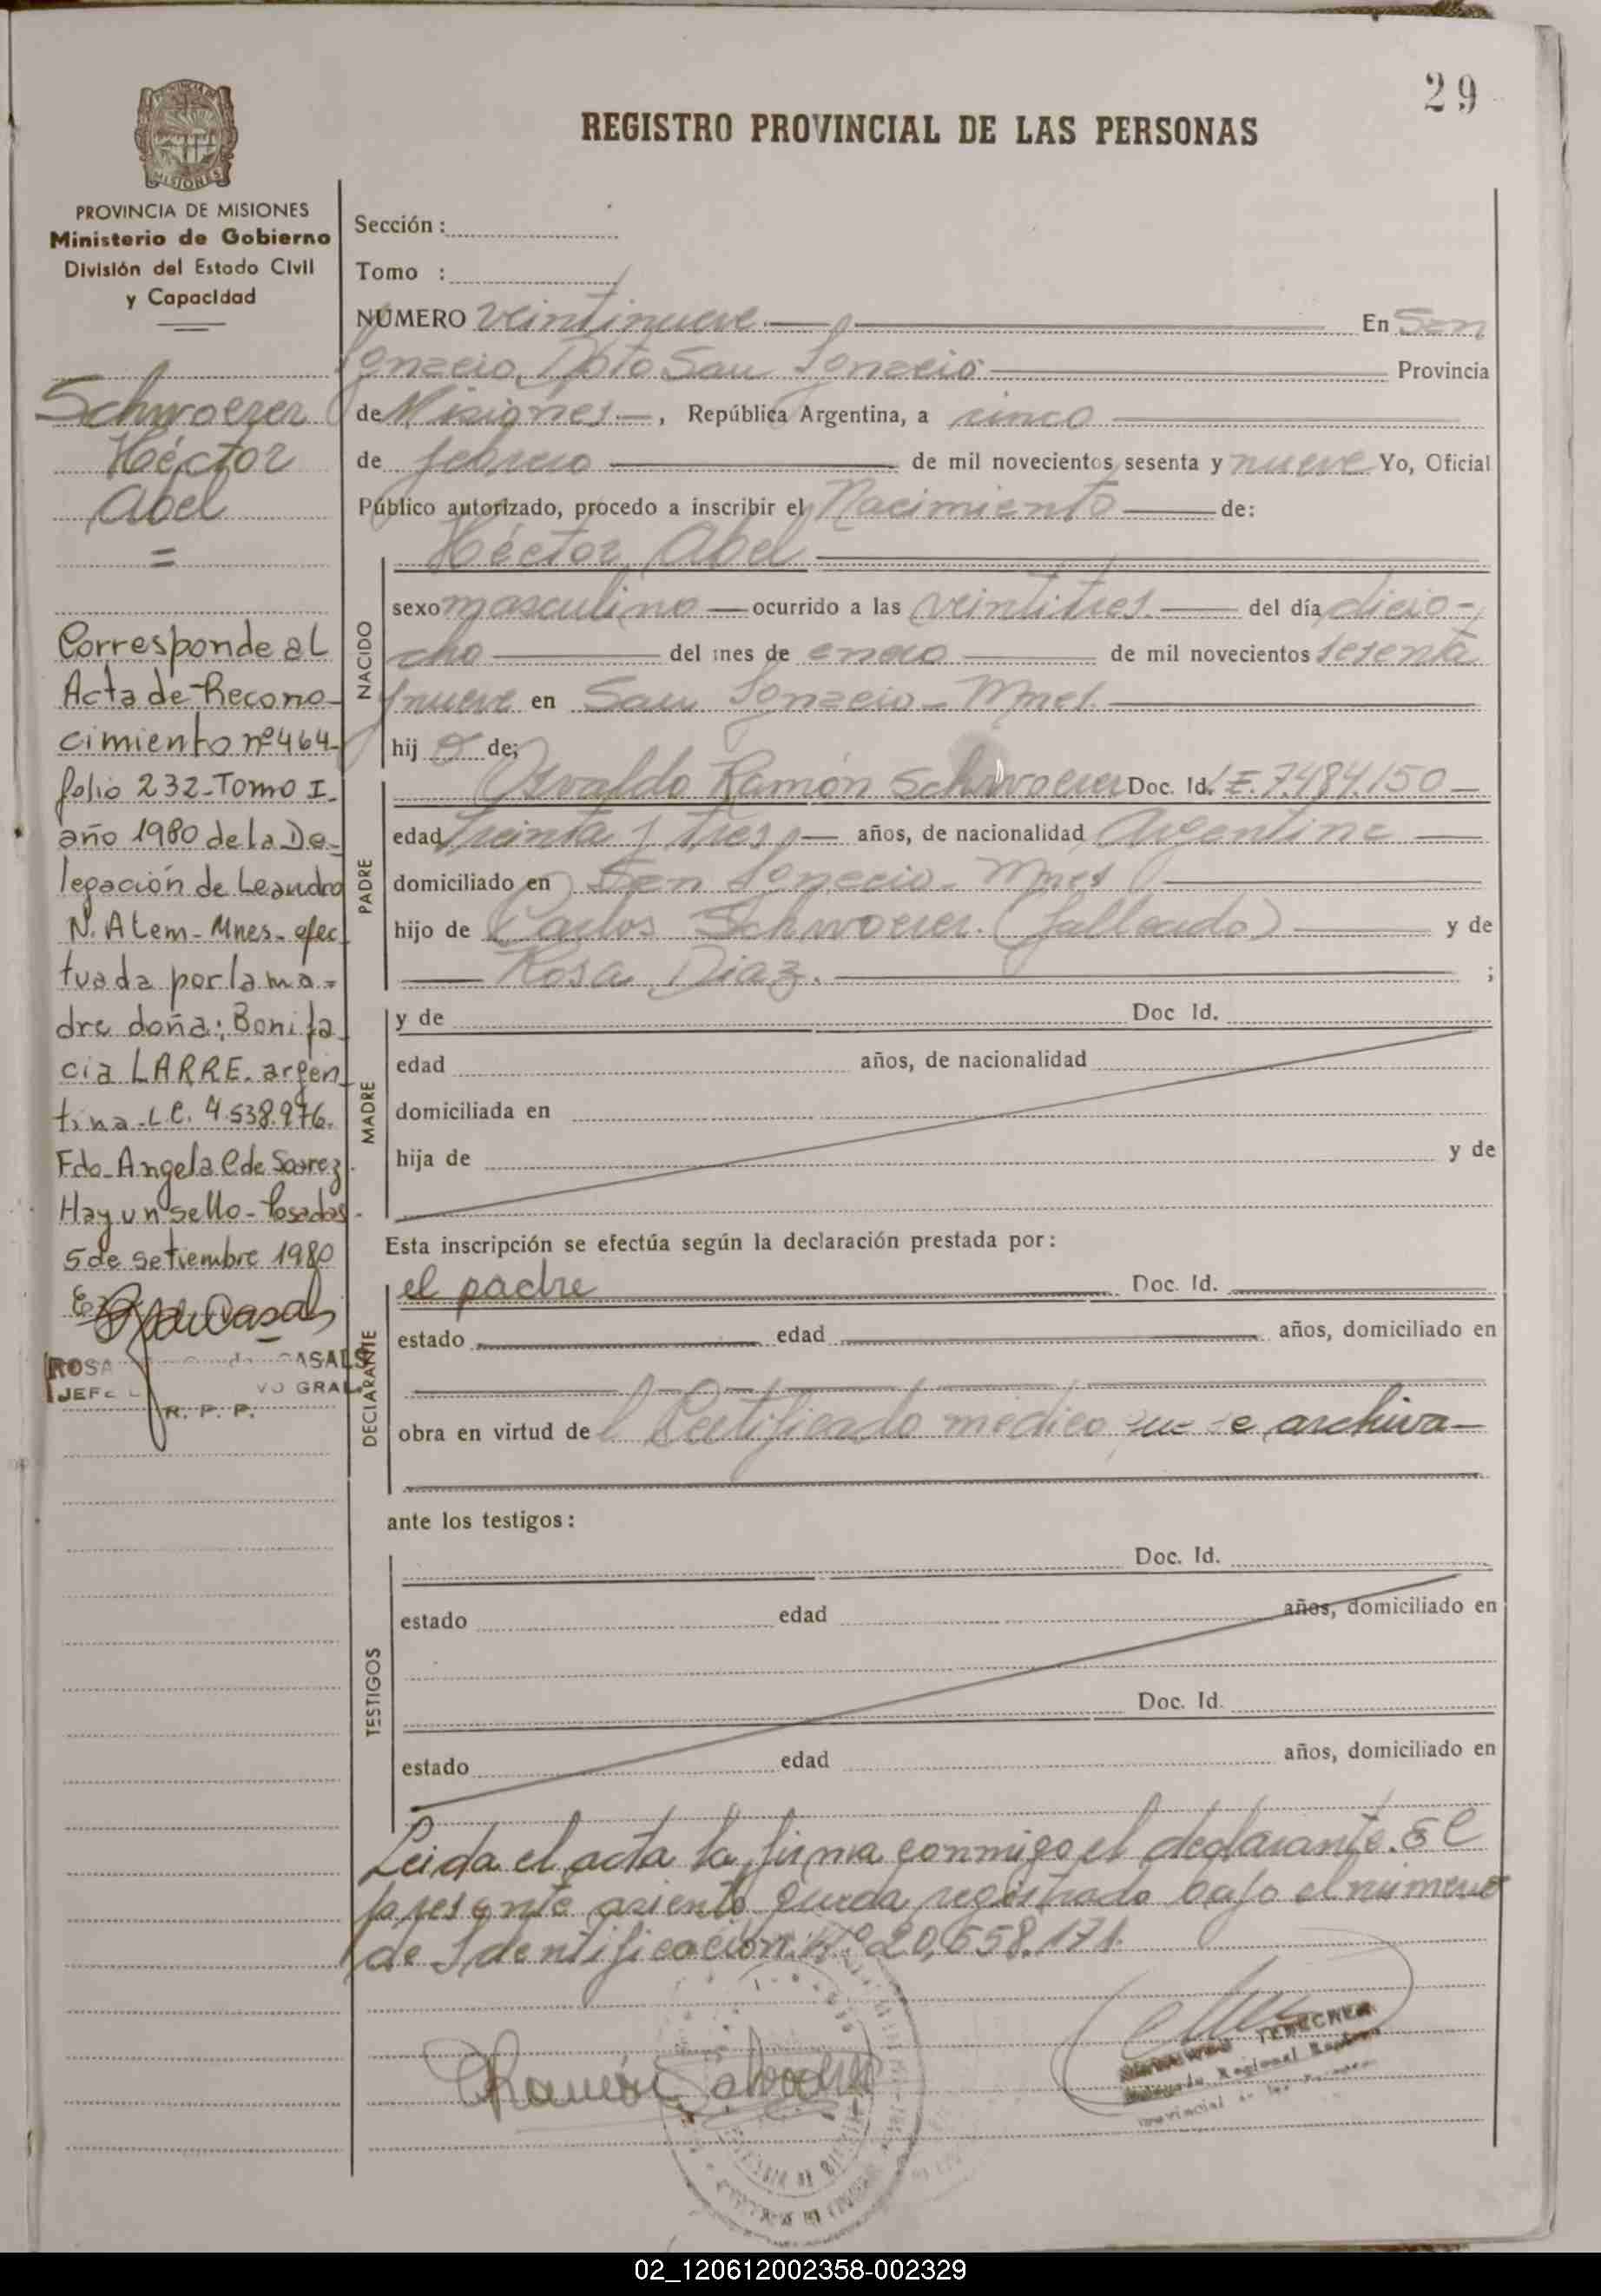 29
REGISTRO PROVINCIAL DE LAS PERSONAS
MISIONES
PROVINCIA DE MISIONES
Ministerio de Gobierno
División del Estado Civil
y Capacidad
Schwoerer
Héctor
Abel
=
Corresponde al
Acta de Recono-
cimiento nº 464-
folio 232-Tomo I.
año 1980 de la De-
legación de Leandro
N. Alem-Mnes-efec
tuada por la ma=
dre doña: Bonifa
cia LARRE. argen
tina-L.C. 4.538.976.
Fdo-Angela C de Soarez.
Hay un sello-Posadas-
5 de setiembre 1980
ROSA CASALS
JEFE GRAL.
R. P. P.
Sección :
Tomo :
NÚMERO veintinueve. En San
Ignacio, Dpto San Ignacio Provincia
de Misiones.—, República Argentina, a cinco
de febrero de mil novecientos sesenta y nueve Yo, Oficial
Público autorizado, procedo a inscribir el Nacimiento de:
Héctor Abel
NACIDO
sexo masculino — ocurrido a las veintitres. del día dicio-
cho del mes de enero de mil novecientos sesenta
y nueve en San Ignacio - Mnes.
hij o de;
PADRE
Osvaldo Ramón Schwoerer Doc. Id. L.E. 7.484.150 —
edad treinta y tres — años, de nacionalidad Argentina
domiciliado en San Ignacio - Mnes
hijo de Carlos Schwoerer. (fallecido) y de
Rosa Diaz. ;
MADRE
y de Doc Id.
edad años, de nacionalidad
domiciliada en
hija de y de
Esta inscripción se efectúa según la declaración prestada por:
DECLARANTE
el padre Doc. Id.
estado edad años, domiciliado en
obra en virtud de l Certificado médico que se archiva—
ante los testigos:
TESTIGOS
Doc. Id.
estado edad años, domiciliado en
Doc. Id.
estado edad años, domiciliado en
Leida el acta la firma conmigo el declarante. El
presente asiento queda registrado bajo el número
de Identificación: Nº 20,658.171.
Ramón Schwoerer
02_120612002358-002329